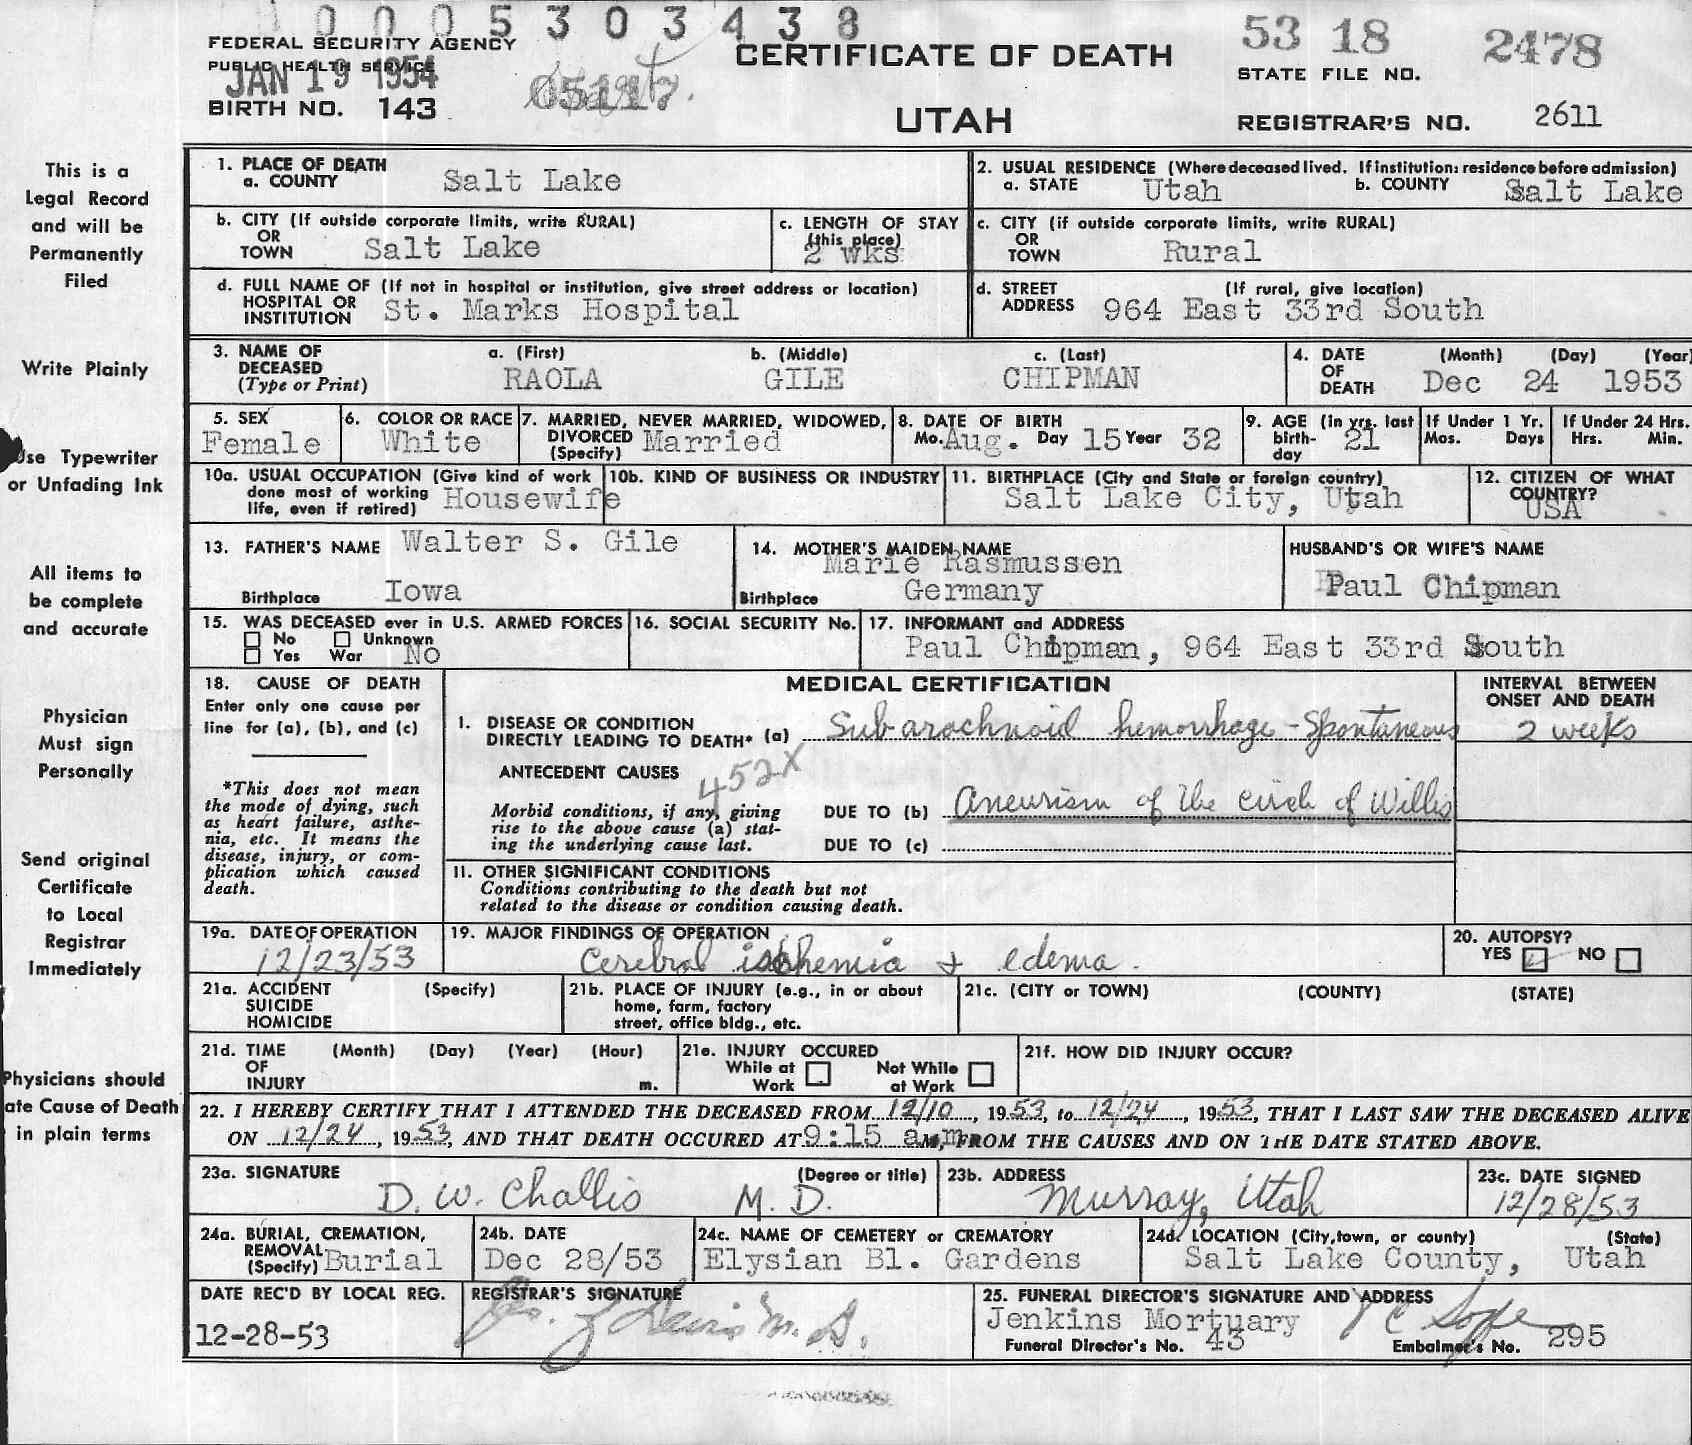 0005303438
FEDERAL SECURITY AGENCY
PUBLIC HEALTH SERVICE
JAN 19 1954
BIRTH NO. 143
CERTIFICATE OF DEATH
UTAH
53 18 2478
STATE FILE NO.
REGISTRAR'S NO. 2611
This is a
Legal Record
and will be
Permanently
Filed
Write Plainly
Use Typewriter
or Unfading Ink
All items to
be complete
and accurate
Physician
Must sign
Personally
Send original
Certificate
to Local
Registrar
Immediately
Physicians should
ate Cause of Death
in plain terms
1. PLACE OF DEATH
a. COUNTY Salt Lake
2. USUAL RESIDENCE (Where deceased lived. If institution: residence before admission)
a. STATE Utah b. COUNTY Salt Lake
b. CITY (If outside corporate limits, write RURAL)
OR
TOWN Salt Lake
c. LENGTH OF STAY
(this place)
2 wks
c. CITY (if outside corporate limits, write RURAL)
OR
TOWN Rural
d. FULL NAME OF (If not in hospital or institution, give street address or location)
HOSPITAL OR
INSTITUTION St. Marks Hospital
d. STREET (If rural, give location)
ADDRESS 964 East 33rd South
3. NAME OF
DECEASED
(Type or Print)
a. (First) b. (Middle) c. (Last)
RAOLA GILE CHIPMAN
4. DATE
OF
DEATH
(Month) (Day) (Year)
Dec 24 1953
5. SEX
Female
6. COLOR OR RACE
White
7. MARRIED, NEVER MARRIED, WIDOWED,
DIVORCED
(Specify) Married
8. DATE OF BIRTH
Mo. Aug. Day 15 Year 32
9. AGE (in yrs. last
birth-
day 21
If Under 1 Yr.
Mos. Days
If Under 24 Hrs.
Hrs. Min.
10a. USUAL OCCUPATION (Give kind of work
done most of working
life, even if retired) Housewife
10b. KIND OF BUSINESS OR INDUSTRY
11. BIRTHPLACE (City and State or foreign country)
Salt Lake City, Utah
12. CITIZEN OF WHAT
COUNTRY?
USA
13. FATHER'S NAME Walter S. Gile
Birthplace Iowa
14. MOTHER'S MAIDEN NAME
Marie Rasmussen
Birthplace Germany
HUSBAND'S OR WIFE'S NAME
Paul Chipman
15. WAS DECEASED ever in U.S. ARMED FORCES
No Unknown
Yes War No
16. SOCIAL SECURITY No.
17. INFORMANT and ADDRESS
Paul Chipman, 964 East 33rd South
18. CAUSE OF DEATH
Enter only one cause per
line for (a), (b), and (c)
*This does not mean
the mode of dying, such
as heart failure, asthe-
nia, etc. It means the
disease, injury, or com-
plication which caused
death.
MEDICAL CERTIFICATION
INTERVAL BETWEEN
ONSET AND DEATH
I. DISEASE OR CONDITION
DIRECTLY LEADING TO DEATH* (a) Subarachnoid hemorrhage - Spontaneous
2 weeks
ANTECEDENT CAUSES
452X
Morbid conditions, if any, giving
rise to the above cause (a) stat-
ing the underlying cause last.
DUE TO (b) Aneurism of the circle of Willis
DUE TO (c)
II. OTHER SIGNIFICANT CONDITIONS
Conditions contributing to the death but not
related to the disease or condition causing death.
19a. DATE OF OPERATION
12/23/53
19. MAJOR FINDINGS OF OPERATION
Cerebral ischemia + edema.
20. AUTOPSY?
YES NO
21a. ACCIDENT (Specify)
SUICIDE
HOMICIDE
21b. PLACE OF INJURY (e.g., in or about
home, farm, factory
street, office bldg., etc.
21c. (CITY or TOWN) (COUNTY) (STATE)
21d. TIME (Month) (Day) (Year) (Hour)
OF
INJURY m.
21e. INJURY OCCURED
While at
Work
Not While
at Work
21f. HOW DID INJURY OCCUR?
22. I HEREBY CERTIFY THAT I ATTENDED THE DECEASED FROM 12/10, 1953, to 12/24, 1953, THAT I LAST SAW THE DECEASED ALIVE
ON 12/24, 1953, AND THAT DEATH OCCURED AT 9:15 a.m, FROM THE CAUSES AND ON THE DATE STATED ABOVE.
23a. SIGNATURE (Degree or title)
D. W. Challis M. D.
23b. ADDRESS
Murray, Utah
23c. DATE SIGNED
12/28/53
24a. BURIAL, CREMATION,
REMOVAL
(Specify) Burial
24b. DATE
Dec 28/53
24c. NAME OF CEMETERY or CREMATORY
Elysian Bl. Gardens
24d. LOCATION (City,town, or county) (State)
Salt Lake County, Utah
DATE REC'D BY LOCAL REG.
12-28-53
REGISTRAR'S SIGNATURE
M. D.
25. FUNERAL DIRECTOR'S SIGNATURE AND ADDRESS
Jenkins Mortuary
Funeral Director's No. 43
Embalmer's No. 295